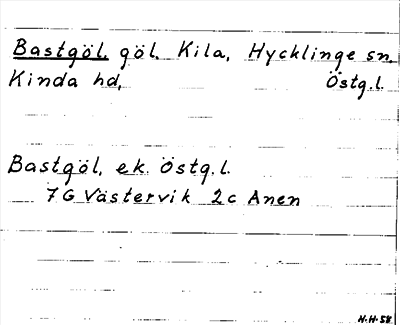 Bastgöl, göl, Kila, Hycklinge sn,
Kinda hd, Östg.l.
Bastgöl, ek. Östg.l.
7G Västervik 2c Anen
H.H-58